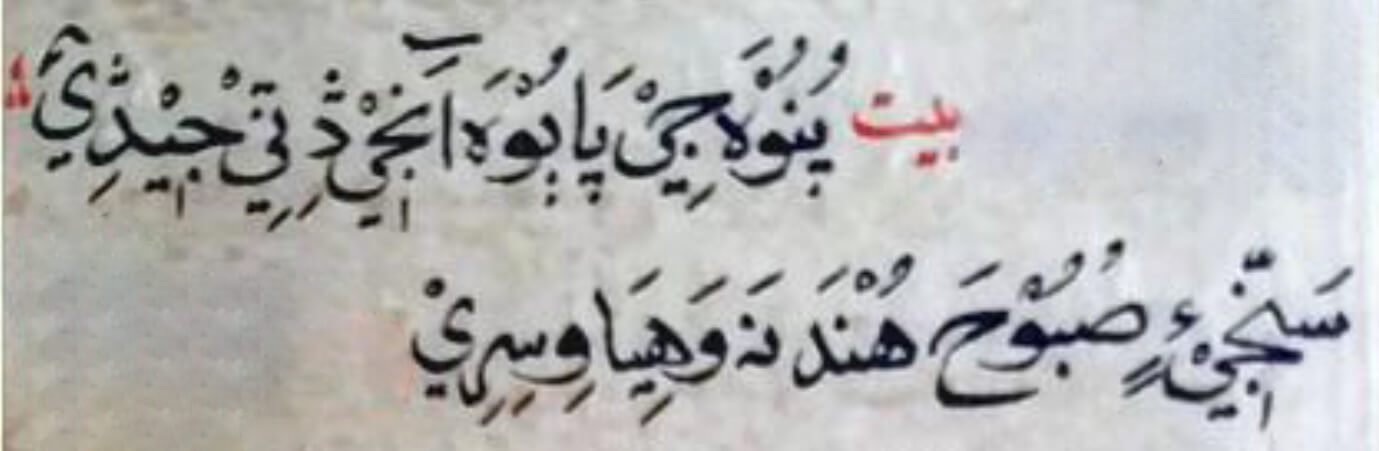 بيت پُنُوْهَ جِيْ پَاٻُوْهَ اَنجِيْ ذِ تِيْ جِيْڏِيْ
سَنّجِيْءٍ صُبُوْحَ هُنْدَ نَہ وَهِيَا وِسِرِيْ